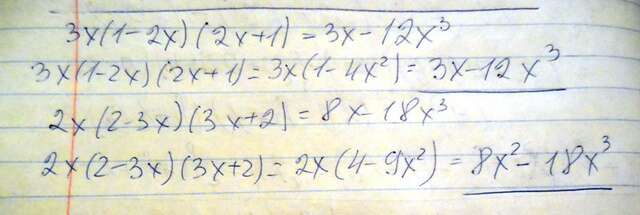 3x(1-2x)(2x+1)=3x-12x³
3x(1-2x)(2x+1)=3x(1-4x²)=3x-12x³
2x(2-3x)(3x+2)=8x-18x³
2x(2-3x)(3x+2)=2x(4-9x²)=8x²-18x³